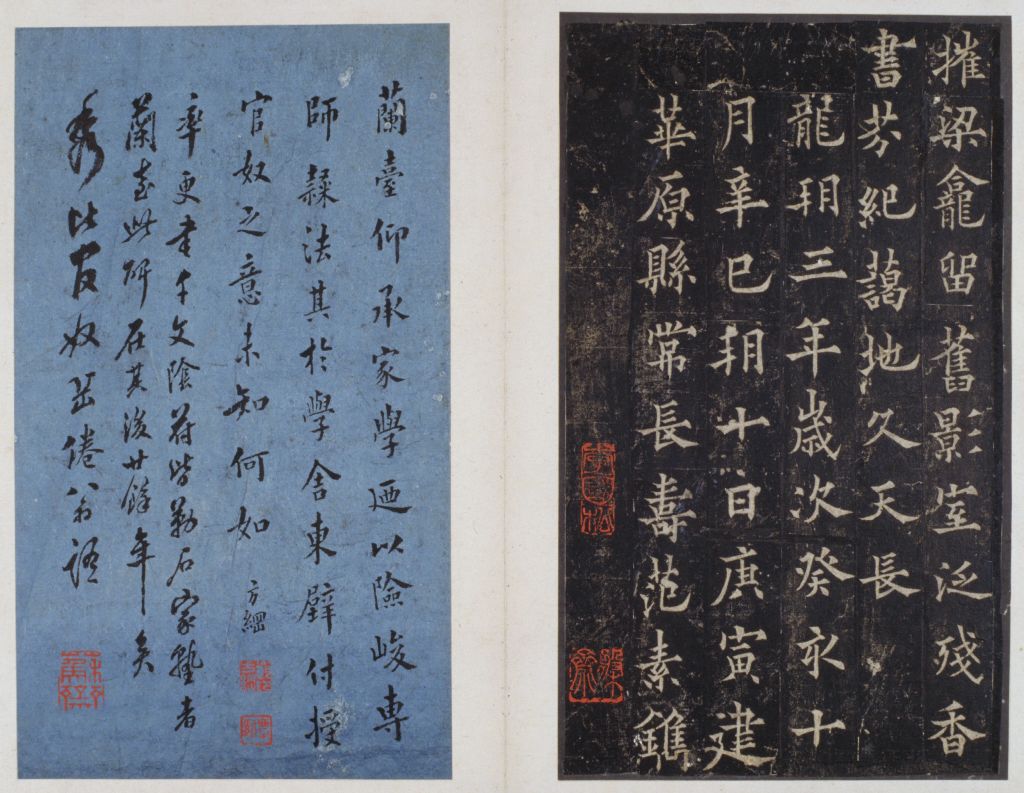 摧梁龕留舊影室泛殘香
書芬紀藹地久天長
龍朔三年歲次癸亥十
月辛巳朔十日庚寅建
華原縣常長壽范素鐫
李國松
蘭臺仰承家學迺以險峻專
師隸法其於學舍東壁付授
官奴之意未知何如 方綱
率更書千文陰符皆勒石家塾者
蘭臺此碑在其後廿餘年矣
秀比官奴岳倦翁語